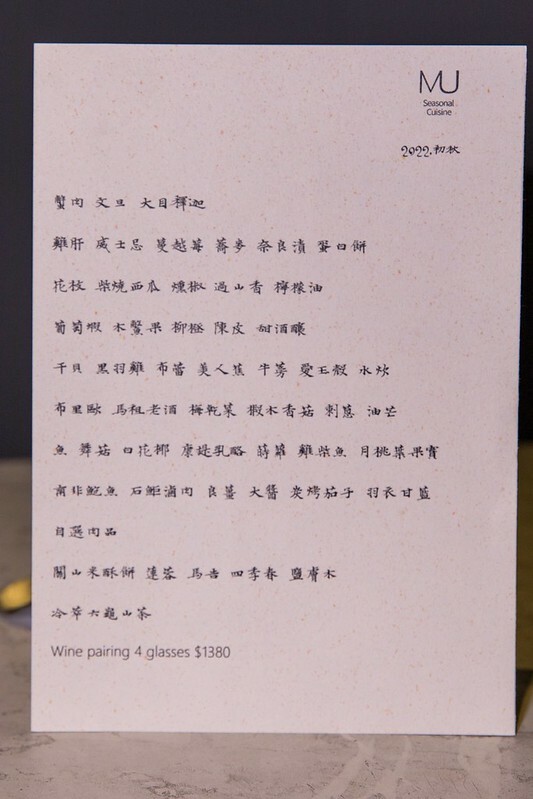 MU
Seasonal
Cuisine
2022.初秋
蟹肉 文旦 大目釋迦
雞肝 威士忌 蔓越莓 蕎麥 奈良漬 蛋白餅
花枝 柴燒西瓜 燻椒 過山香 檸檬油
葡萄蝦 木鱉果 柳橙 陳皮 甜酒釀
干貝 黑羽雞 布蕾 美人蕉 牛蒡 愛玉殼 水炊
布里歐 馬祖老酒 梅乾菜 椴木香菇 刺蔥 油芒
魚 舞菇 白花椰 康堤乳酪 蒔蘿 雞柴魚 月桃葉果實
南非鮑魚 石鉅滷肉 良薑 大醬 炭烤茄子 羽衣甘藍
自選肉品
關山米酥餅 蓮蓉 馬告 四季春 鹽膚木
冷萃六龜山茶
Wine pairing 4 glasses $1380